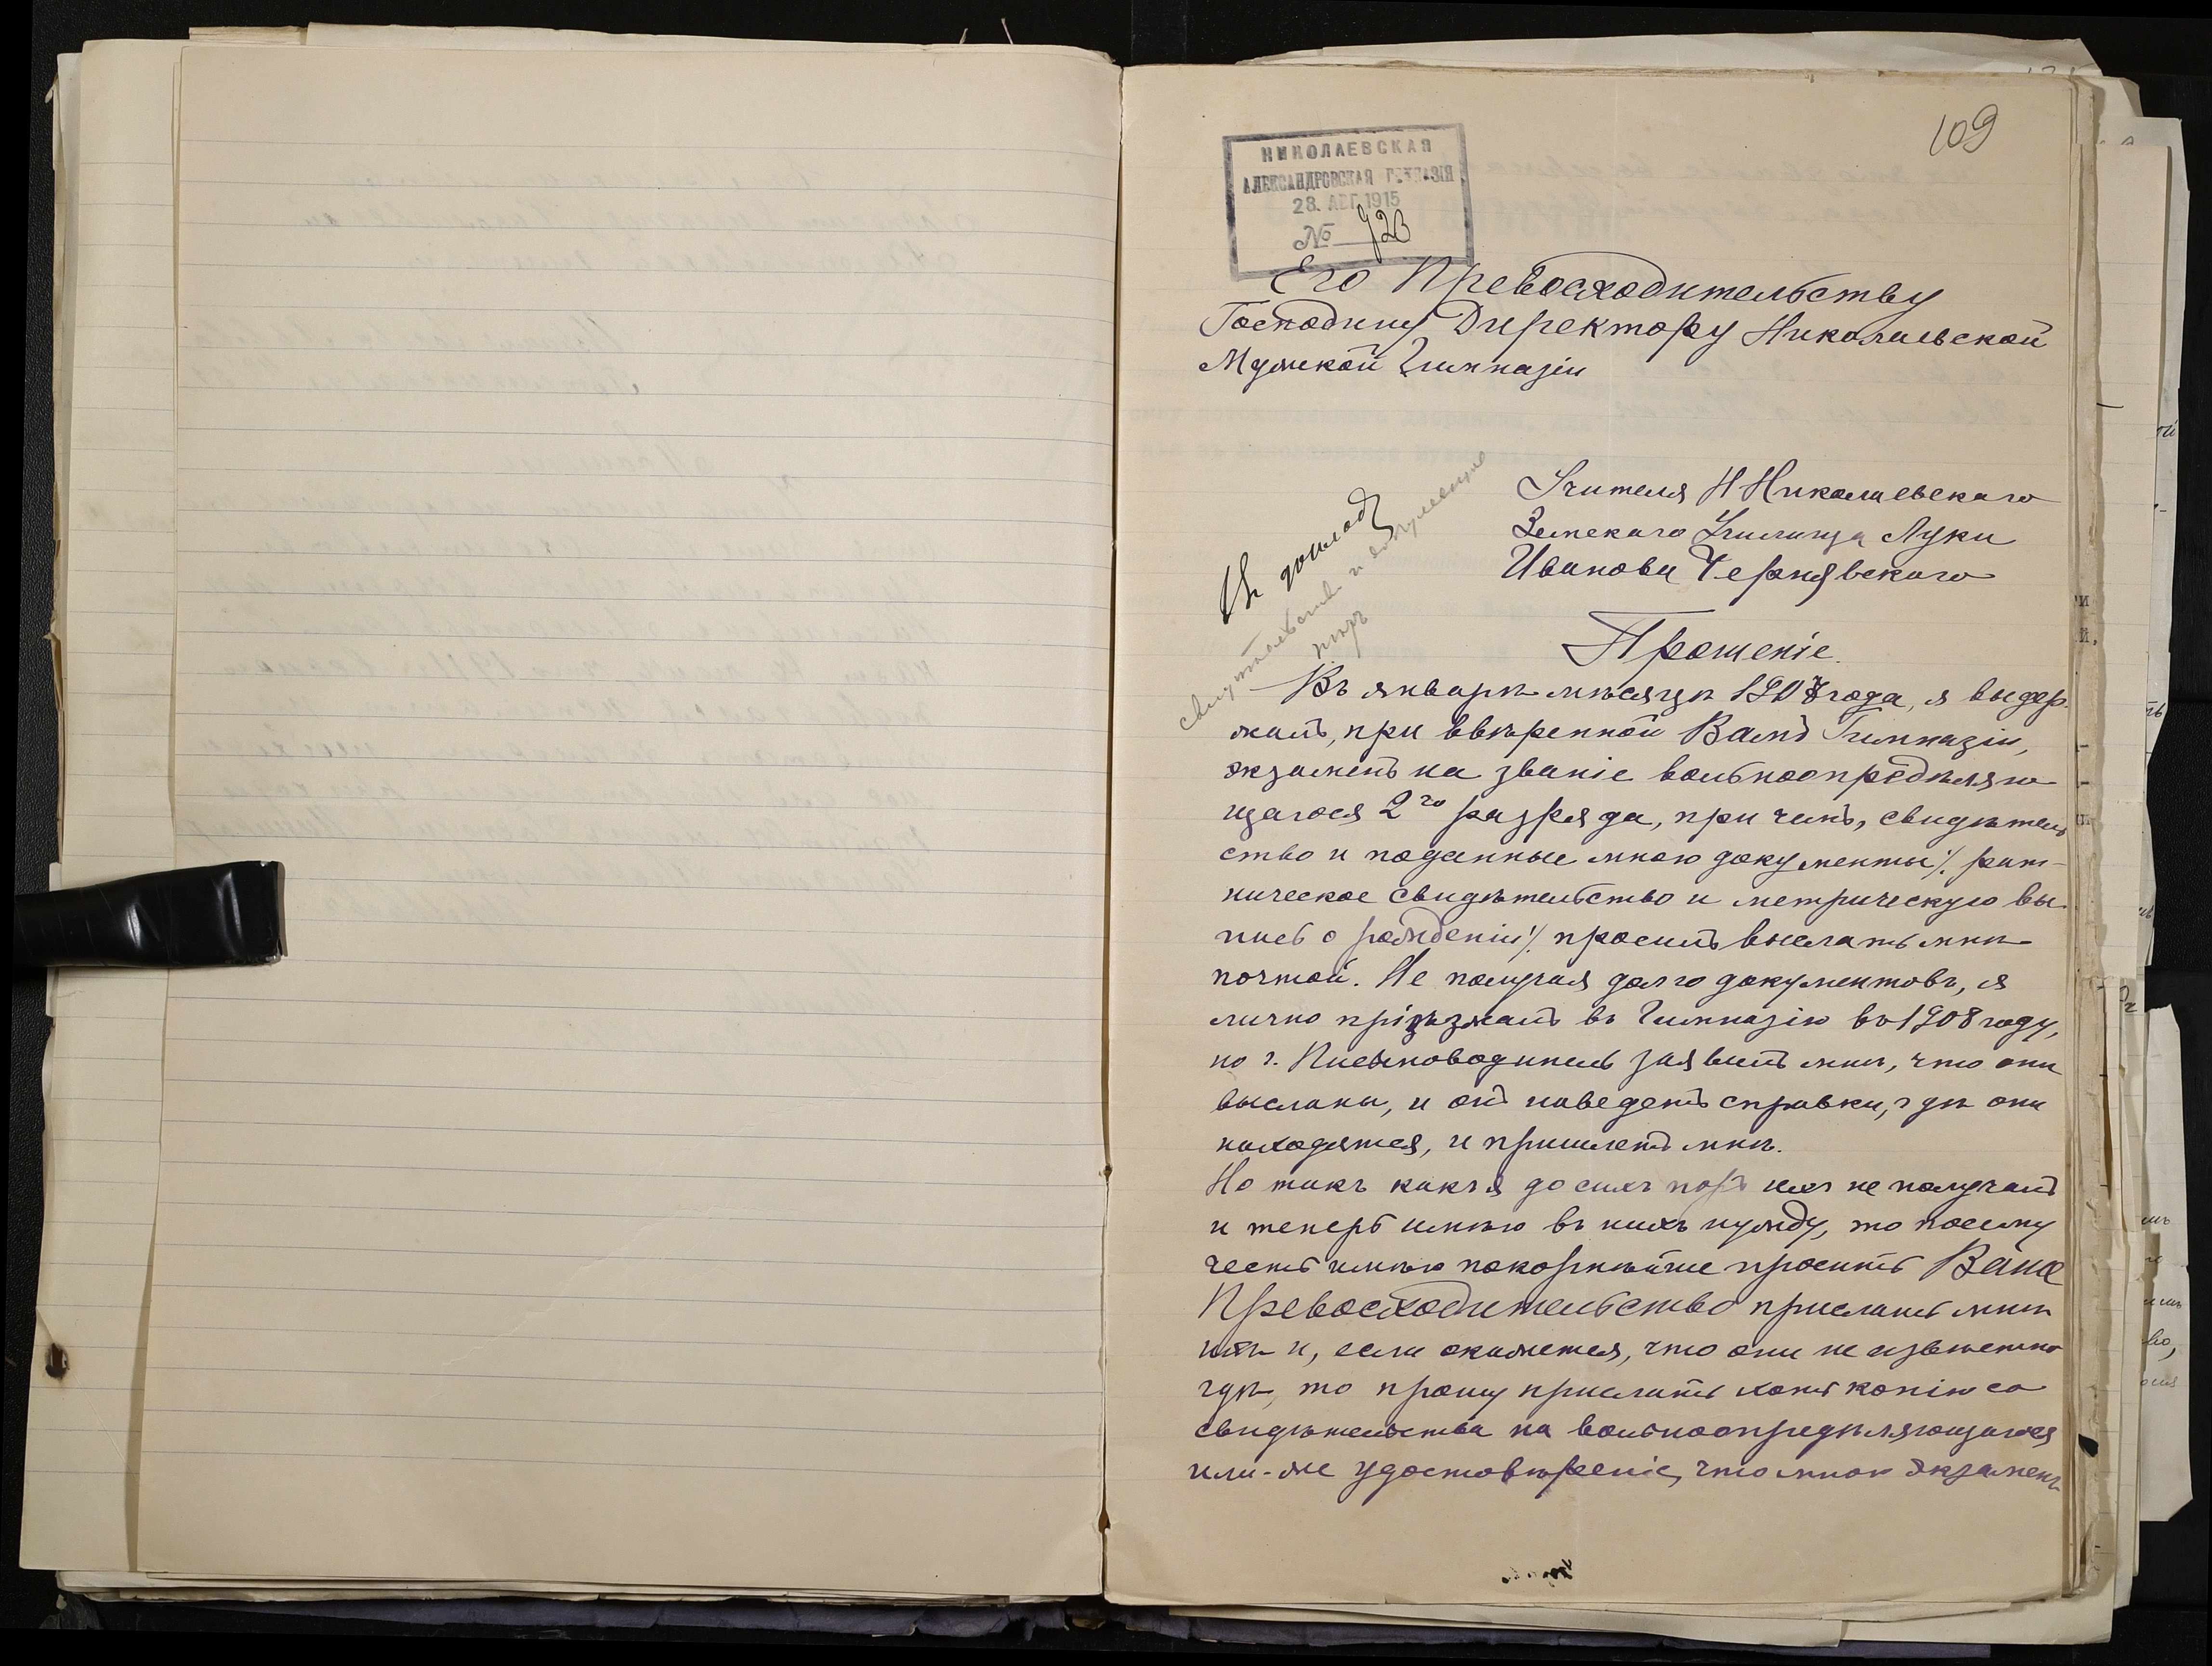 109
НИКОЛАЕВСКАЯ
АЛЕКСАНДРОВСКАЯ ГИМНАЗІЯ
28. АВГ. 1915
№ 723
Его Превосходительству
Господину Директору Николаевской
Мужской Гимназіи
Учителя Н Николаевскаго
Земскаго Училища Луки
Иванова Чернявскаго
Прошеніе.
Въ январѣ мѣсяцѣ 1908 года, я выдер-
жалъ, при ввѣренной Вамъ Гимназіи,
экзаменъ на званіе вольноопредѣляю
щагося 2го разряда, при чемъ, свидѣтель
ство и поданные мною документы ⁒ рат-
ническое свидѣтельство и метрическую вы-
пись о рожденіи ⁒ просилъ выслать мнѣ
почтой. Не получая долго документовъ, я
лично пріѣзжалъ въ Гимназію въ 1908 году,
но г. Письмоводитель заявилъ мнѣ, что они
высланы, и онъ наведетъ справки, гдѣ они
находятся, и пришлетъ мнѣ.
Но такъ какъ я до сихъ поръ ихъ не получалъ
и теперь имѣю въ нихъ нужду, то посему
честь имѣю покорнѣйше просить Ваше
Превосходительство прислать мнѣ
ихъ и, если окажется, что они не извѣстно
гдѣ, то прошу прислать хоть копію со
свидѣтельства на вольноопредѣляющагося
или-же удостовѣреніе, что мною экзаменъ